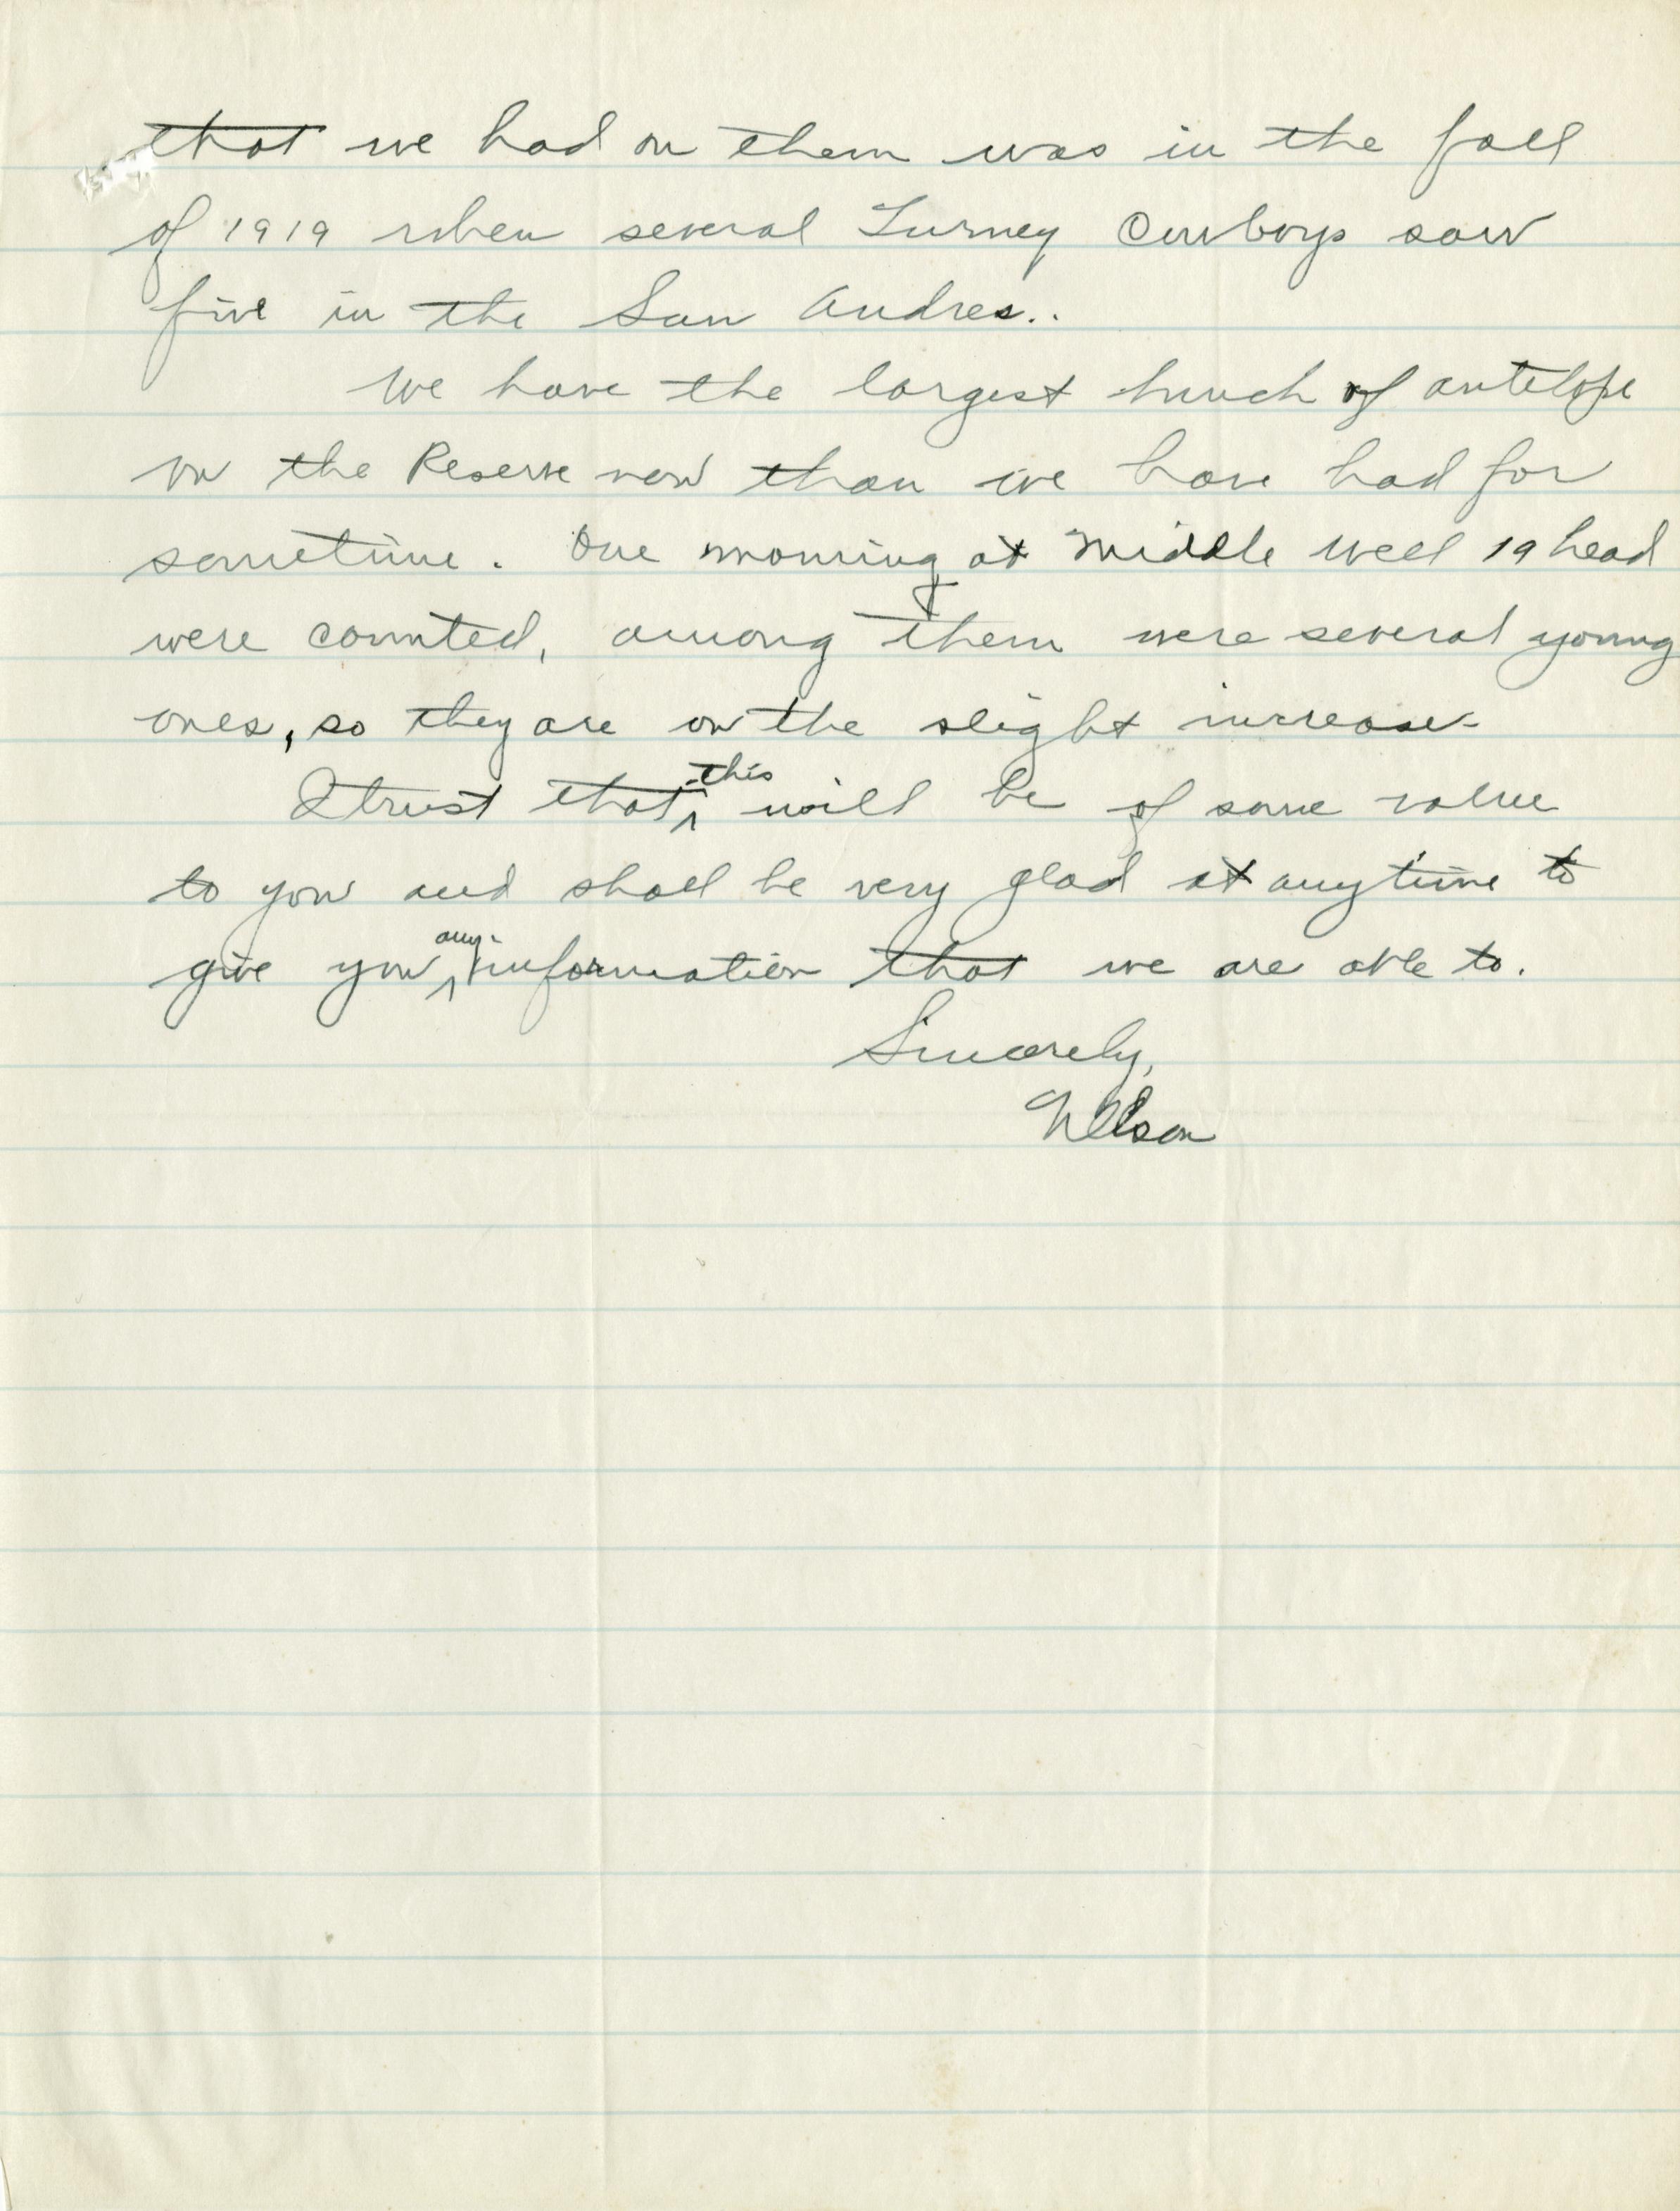 that we had on them was in the fall
of 1919 when several Turney Cowboys saw
five in the San Andres..
We have the largest bunch of antelope
on the Reserve now than we have had for
sometime. One morning at Middle Well 19 head
were counted, among them were several young
ones, so they are on the slight increase.
I trust that this will be of some value
to you and shall be very glad at anytime to
give you any information that we are able to.
Sincerely,
Nelson